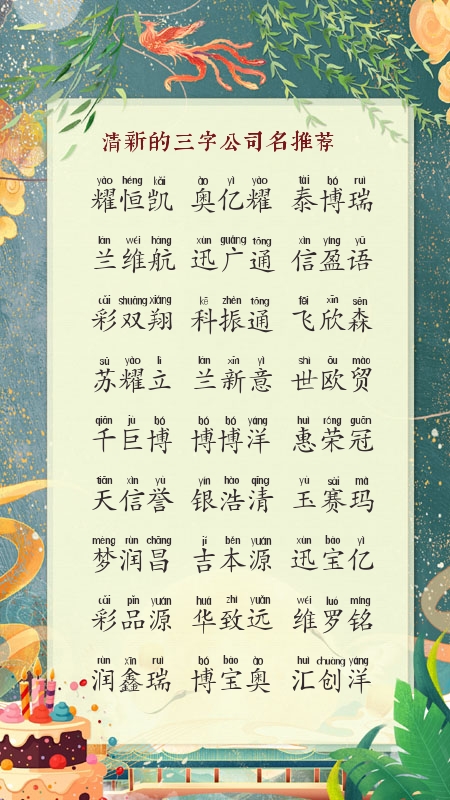 清新的三字公司名推荐
yào héng kǎi ào yì yào tài bó ruì
耀恒凯 奥亿耀 泰博瑞
lán wéi háng xùn guǎng tōng xìn yíng yǔ
兰维航 迅广通 信盈语
cǎi shuāng xiáng kē zhèn tōng fēi xīn sēn
彩双翔 科振通 飞欣森
sū yào lì lán xīn yì shì ōu mào
苏耀立 兰新意 世欧贸
qiān jù bó bó bó yáng huì róng guān
千巨博 博博洋 惠荣冠
tiān xìn yù yín hào qīng yù sài mǎ
天信誉 银浩清 玉赛玛
mèng rùn chāng jí běn yuán xùn bǎo yì
梦润昌 吉本源 迅宝亿
cǎi pǐn yuán huá zhì yuǎn wéi luó míng
彩品源 华致远 维罗铭
rùn xīn ruì bó bǎo ào huì chuàng yáng
润鑫瑞 博宝奥 汇创洋